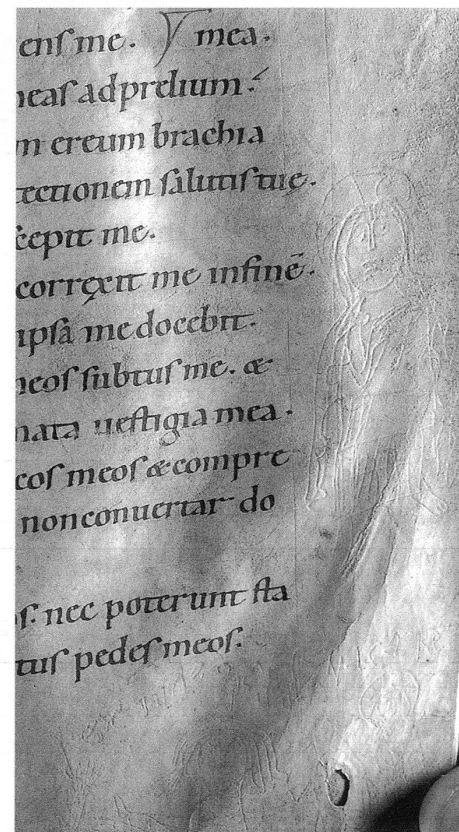 enſ me. Ɏ mea.
neaſ ad prelium.
m ereum brachia
tectionem ſalutiſ tue.
ſcepit me.
correxit me in finē.
ipſa me docebit.
meoſ ſubtuſ me. &
mata ueſtigia mea.
coſ meoſ & compre
non conuertar do
oſ. nec poterunt ſta
tuſ pedeſ meoſ.